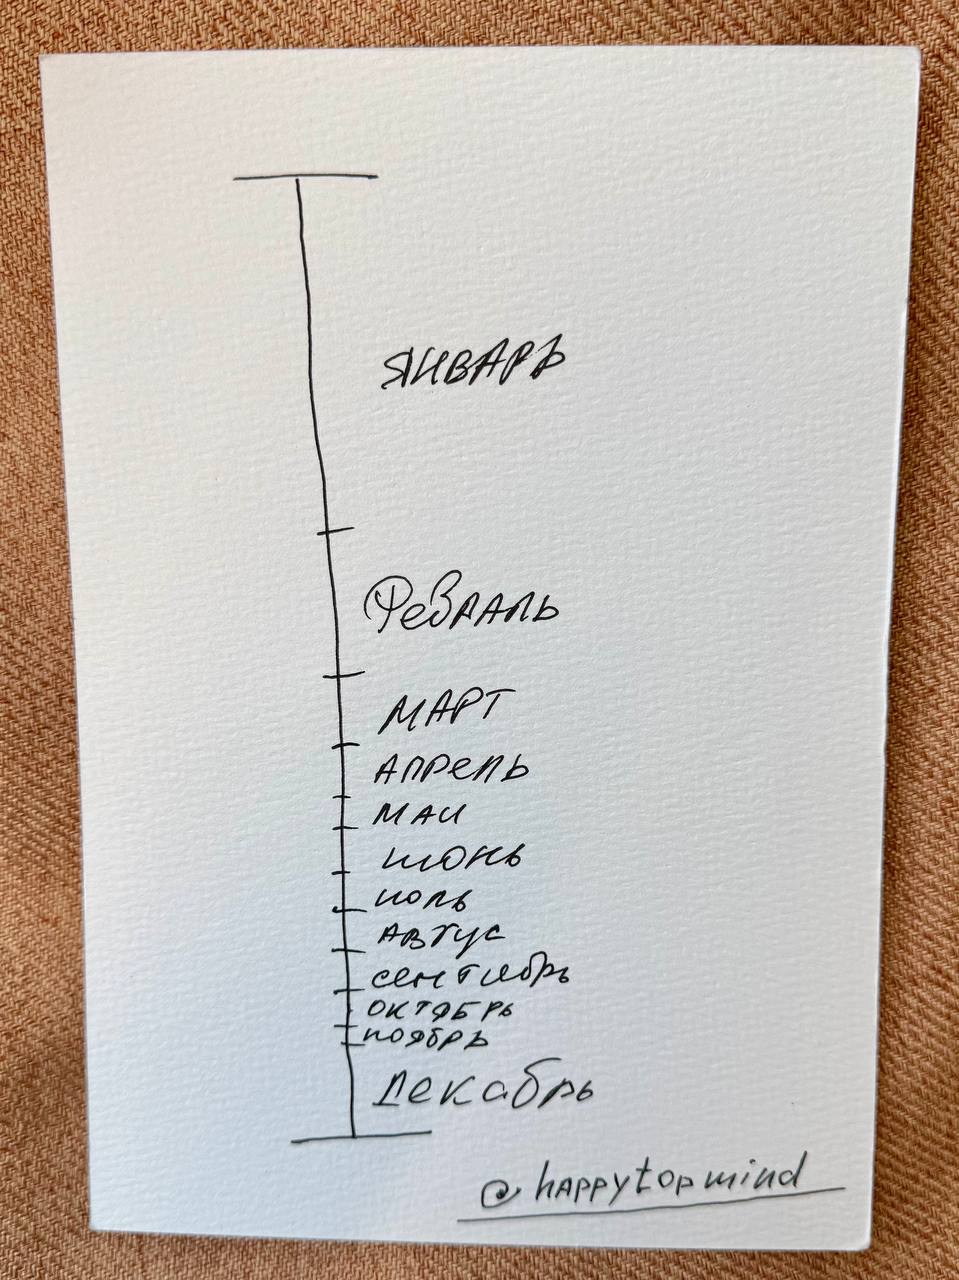 ЯНВАРЬ
ФеВРАЛЬ
МАРТ
АПРеЛЬ
МАИ
ИЮНЬ
ИЮЛЬ
АВГУС
сентябрь
ОКТЯБРЬ
НОЯБРЬ
Декабрь
@happytopmind